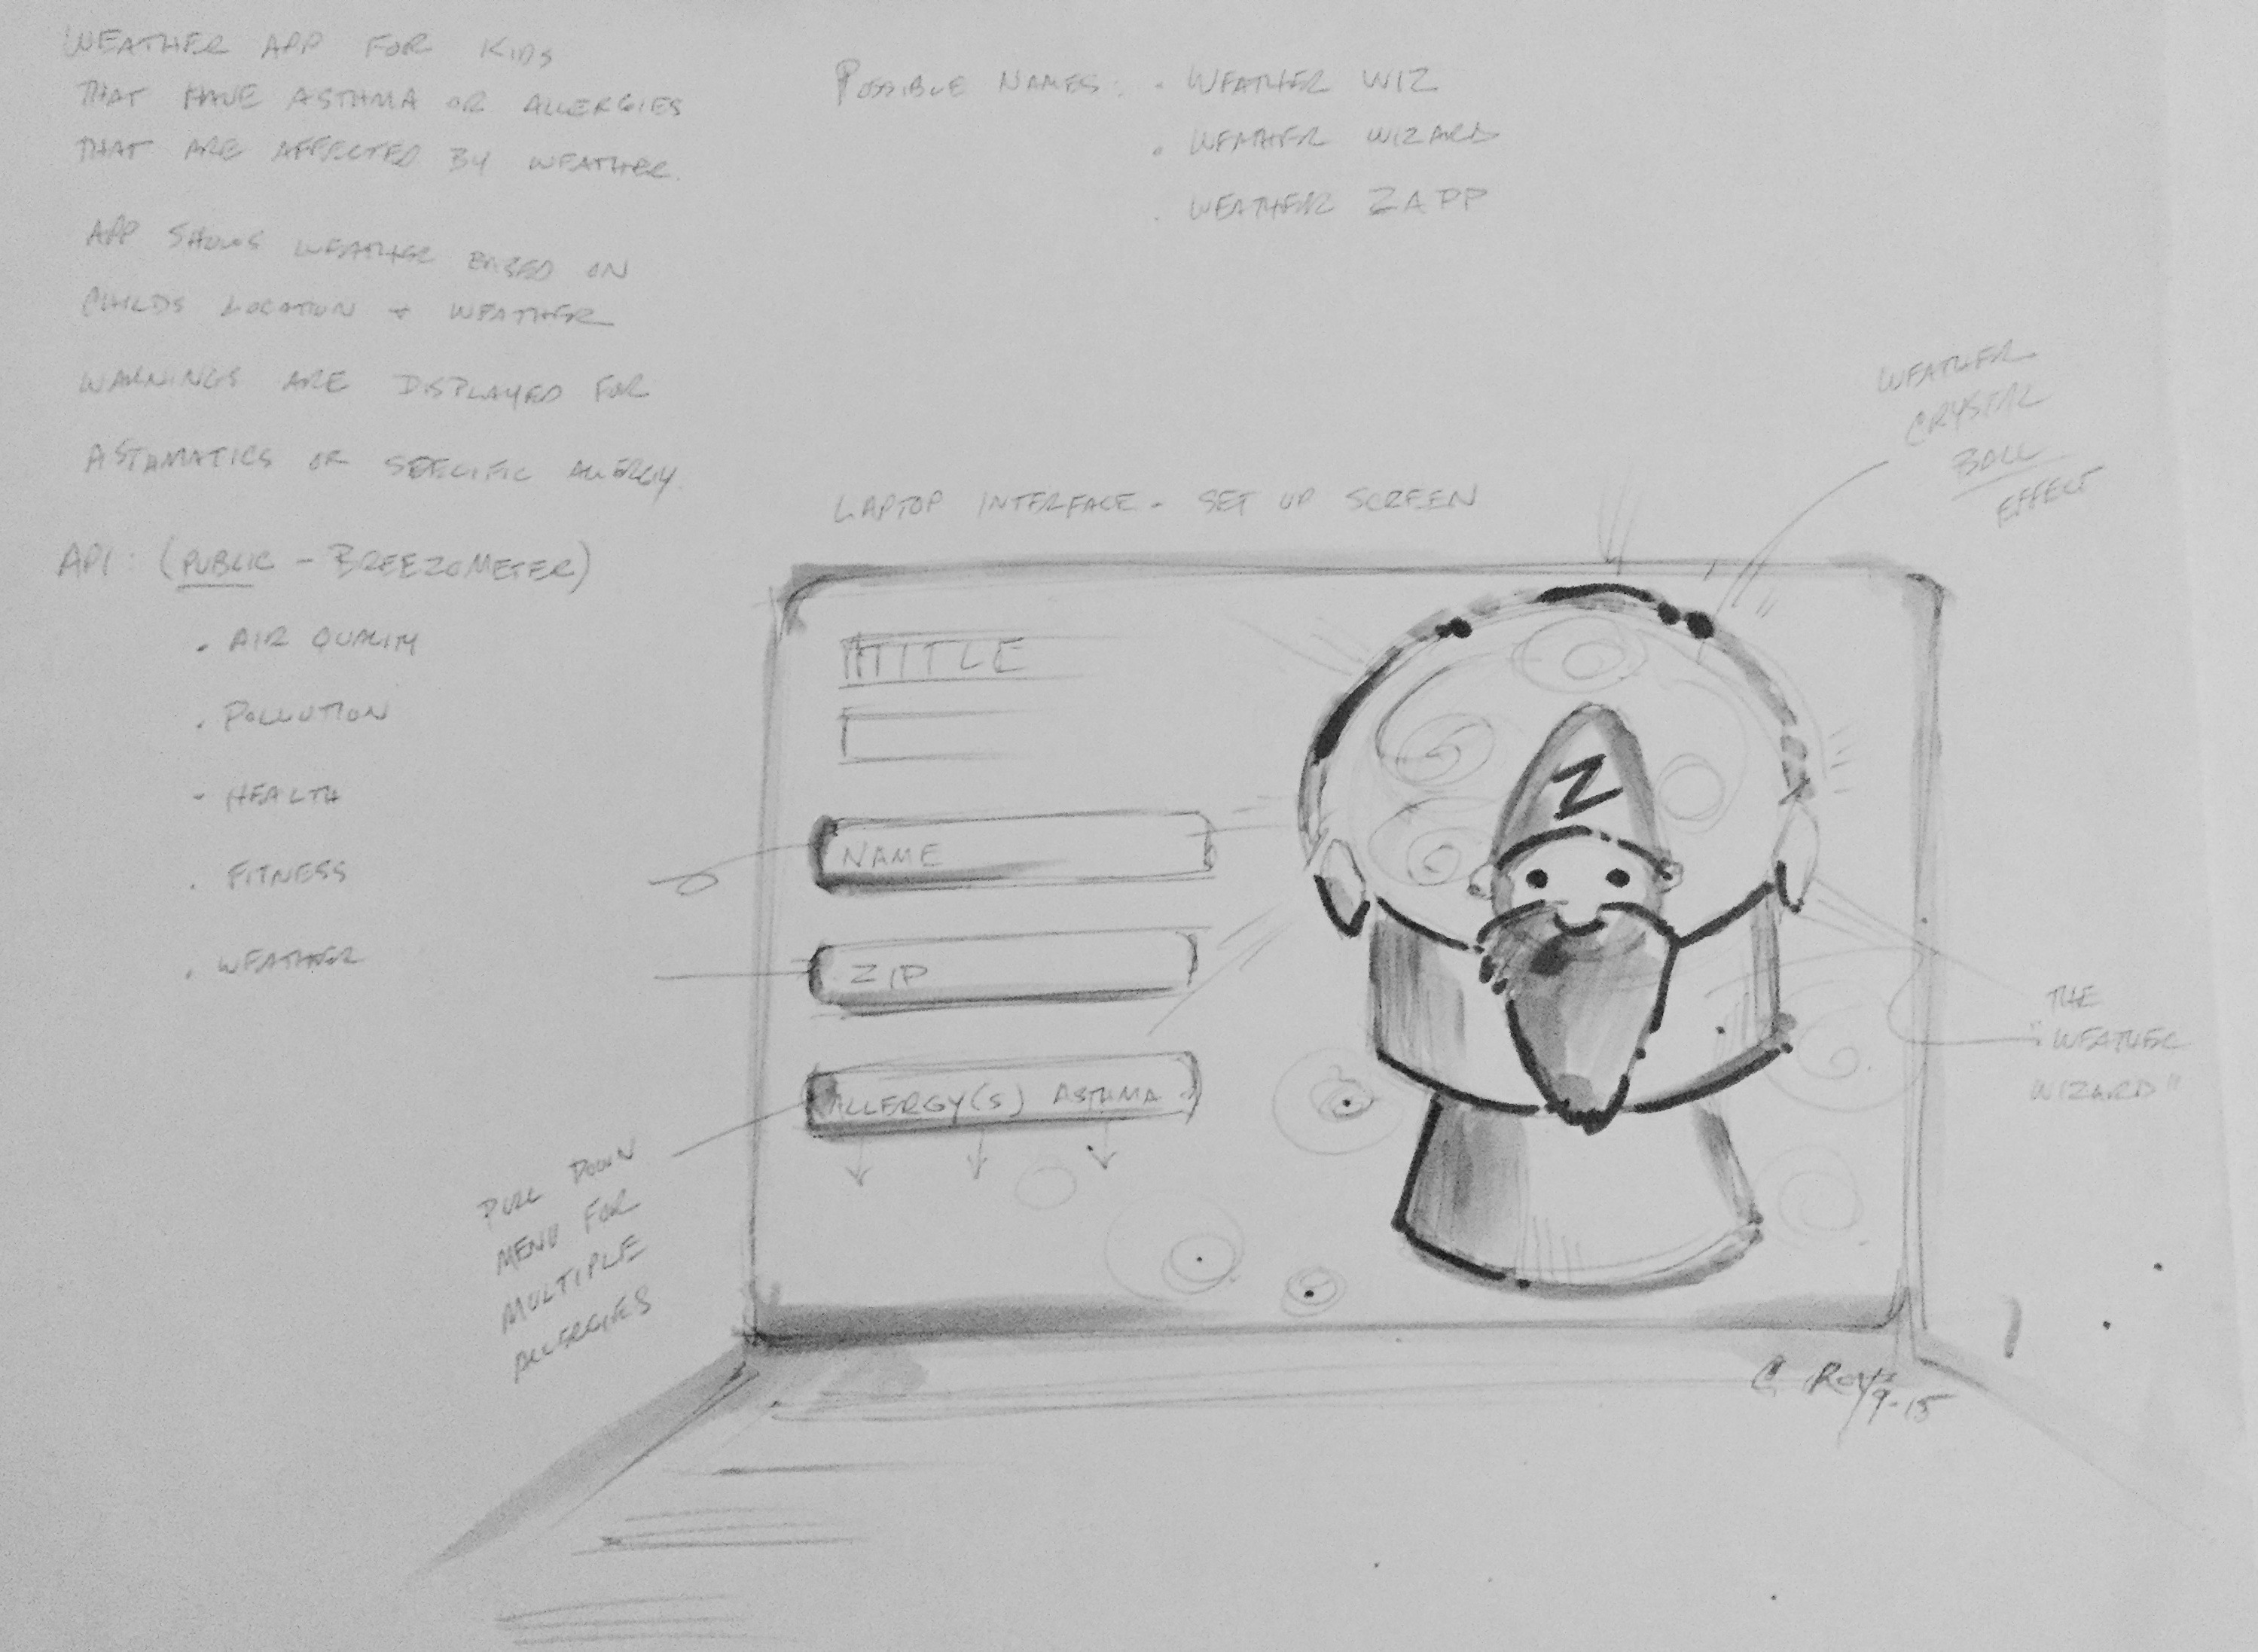 WEATHER APP FOR KIDS
THAT HAVE ASTHMA OR ALLERGIES
THAT ARE AFFECTED BY WEATHER.
APP SHOWS WEATHER BASED ON
CHILDS LOCATION + WEATHER
WARNINGS ARE DISPLAYED FOR
ASTAMATICS OR SPECIFIC ALLERGY.
API: (PUBLIC - BREEZOMETER)
. AIR QUALITY
. POLLUTION
- HEALTH
. FITNESS
. WEATHER
POSSIBLE NAMES: . WEATHER WIZ
. WEATHER WIZARD
. WEATHER ZAPP
WEATHER
CRYSTAL
BALL
EFFECT
LAPTOP INTERFACE - SET UP SCREEN
TITLE
NAME
ZIP
ALLERGY(S) ASTHMA
Z
PULL DOWN
MENU FOR
MULTIPLE
ALLERGIES
THE
"WEATHER
WIZARD"
9-15